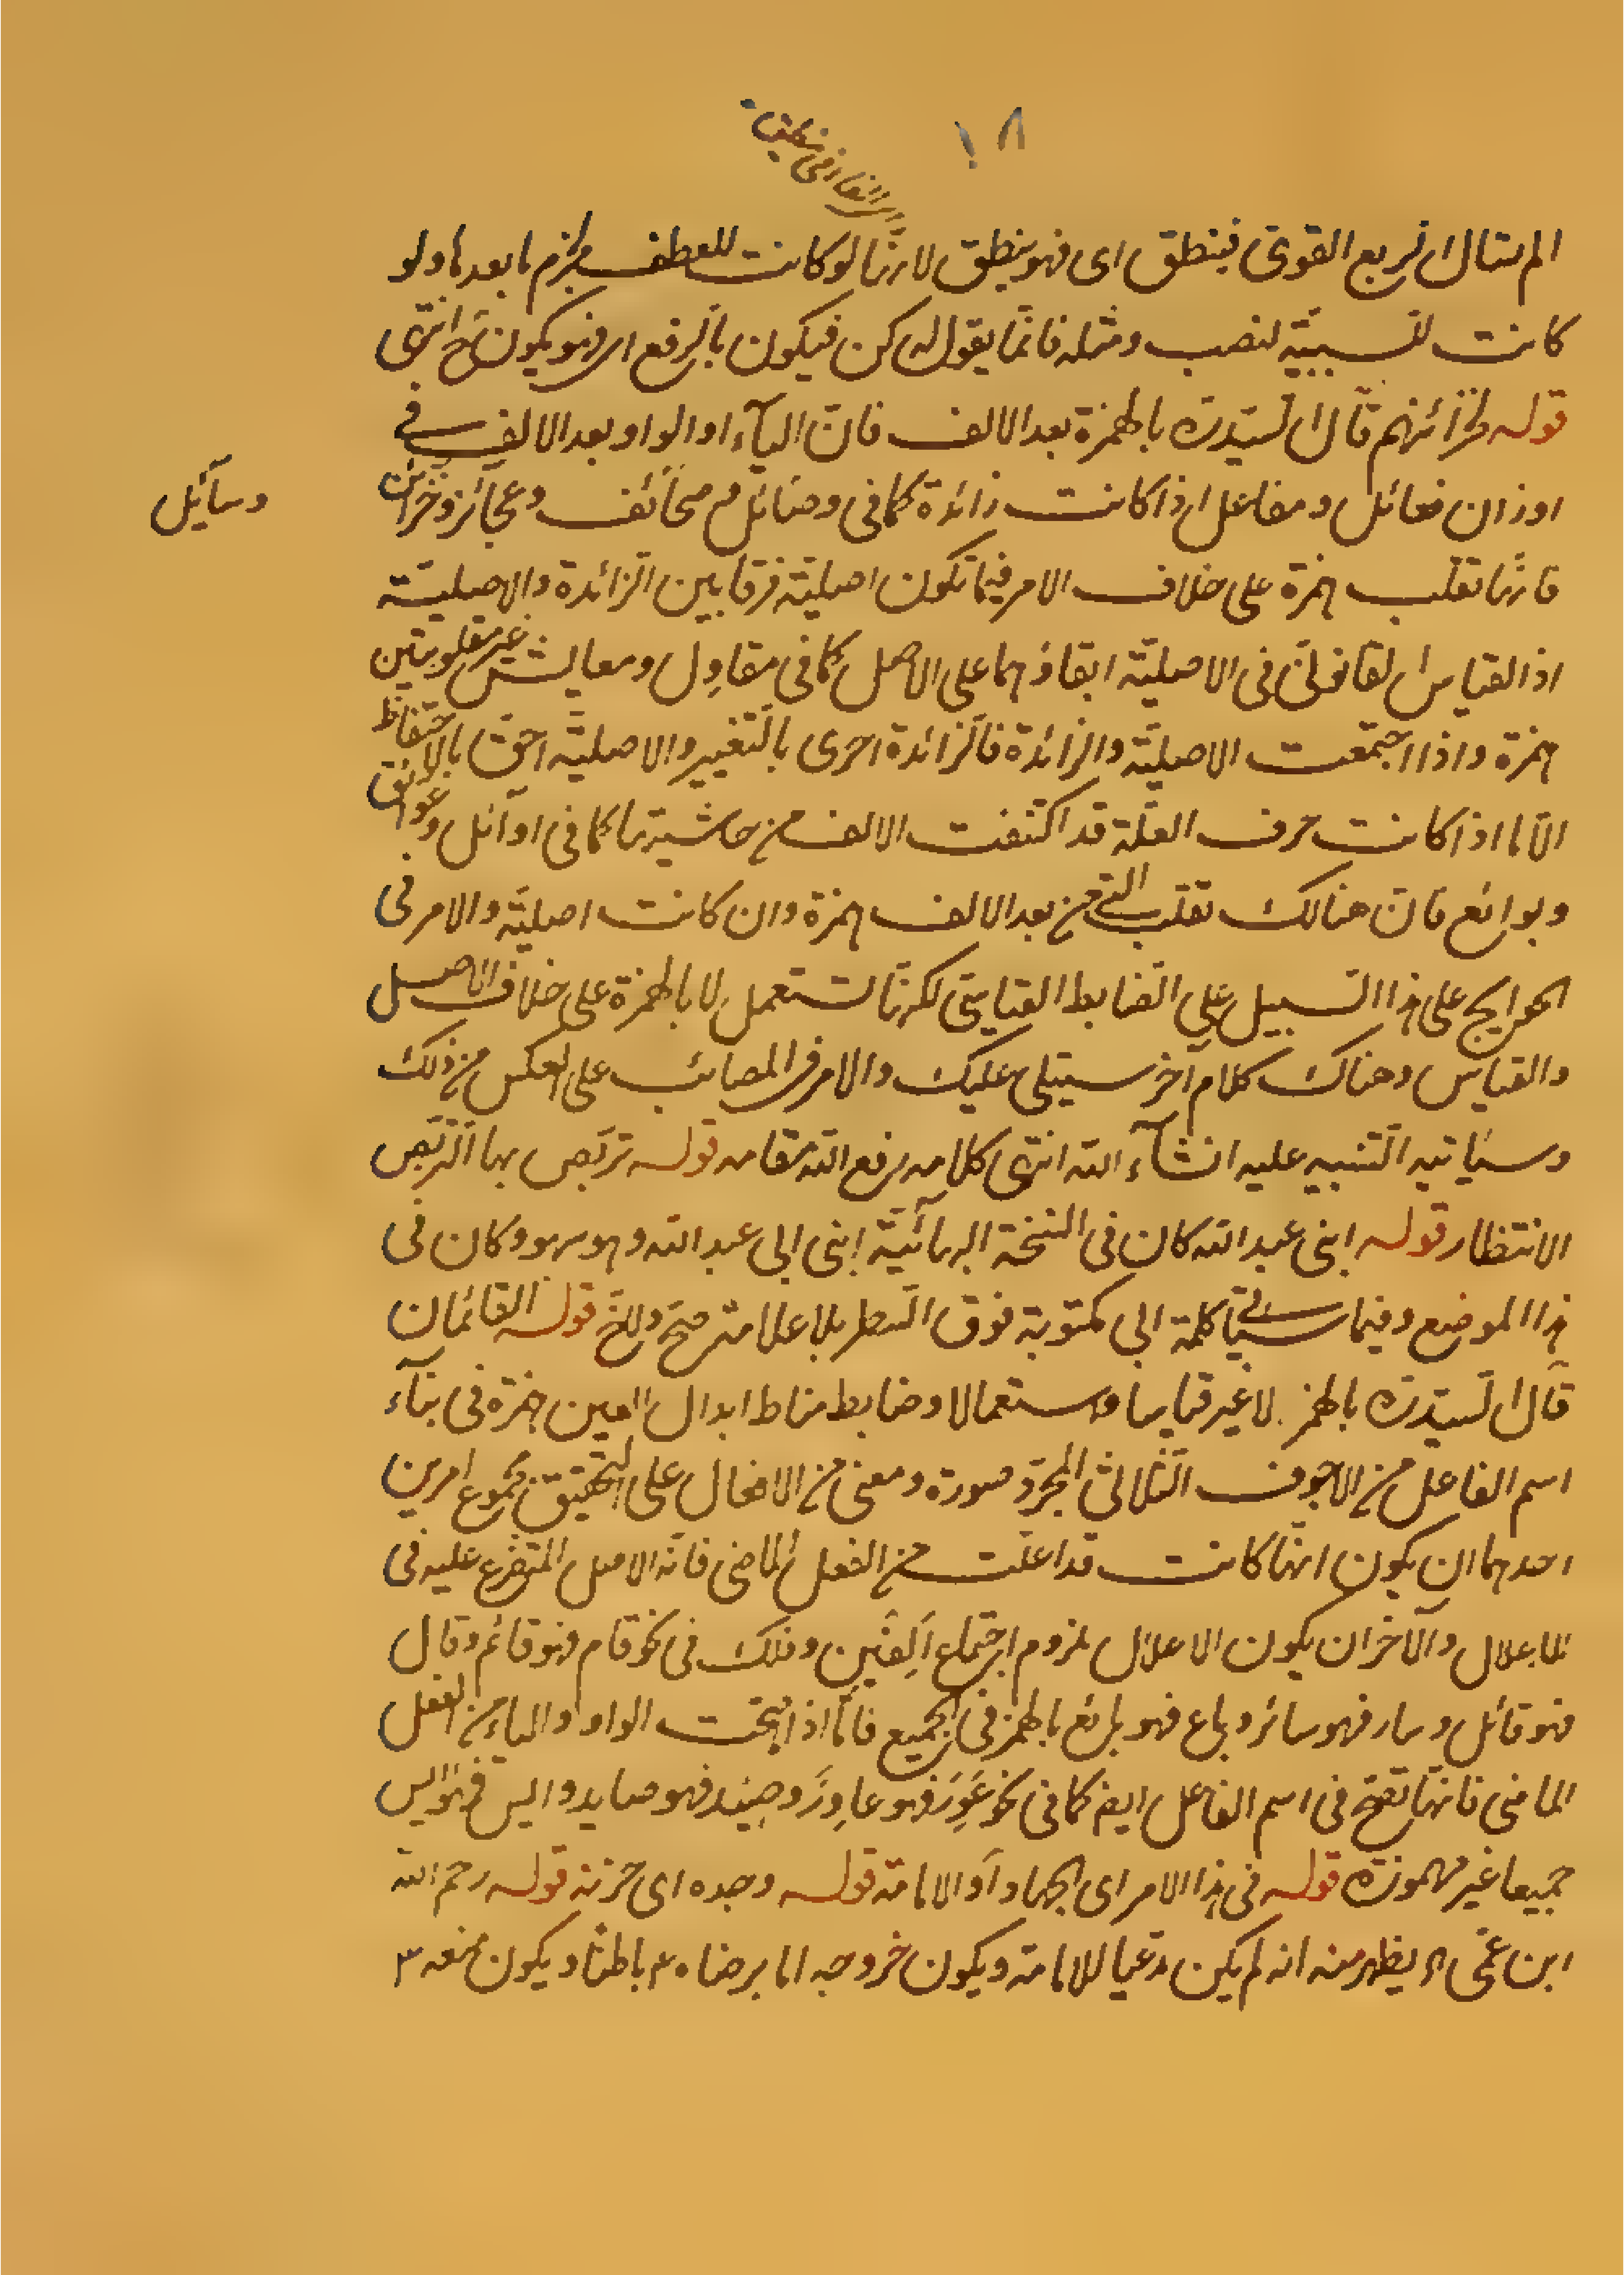 ١٨
الم تسال الربع القوى فينطق اى فهو ينطق لانها لو كانت للعطف لجزم ما بعدها ولو
كانت للسببية لنصب ومثله فانما يقول له كن فيكون بالرفع اى فهو يكون ح انتهى
قوله لخزائنهم قال السيد ره بالهمزة بعد الالف فان الياء او الواو بعد الالف فى
اوزان فعائل ومفاعل اذا كانت زائدة كما فى وصائل و صحائف وعجائز وخزائن
وسائل
فانها تقلب همزة على خلاف الامر فيما تكون اصلية فرقا بين الزائدة والاصلية
اذ القياس القانونى فى الاصلية ابقاؤهما على الاصل كما فى مقاول ومعايش غير مقلوبتين
همزة واذا اجتمعت الاصلية والزائدة فالزائدة احرى بالتغيير والاصلية احق بالاحتفاظ
الا ما اذا كانت حرف العلة قد اكتنفت الالف من حاشيتها كما فى اوائل وعوائق
وبوائع فان هنالك تقلب التى من بعد الالف همزة وان كانت اصلية والامر فى
الحوايج على هذا السبيل على الضابط القياسى لكنها تستعمل لا بالهمزة على خلاف الاصل
والقياس وهناك كلام آخر سيتلى عليك والامر فى المصائب على العكس من ذلك
وسياتيه التنبيه عليه انشاء الله انتهى كلامه رفع الله مقامه قوله تربص بها التربص
الانتظار قوله ابنى عبد الله كان فى النسخة البهائية ابنى ابى عبد الله وهو سهو وكان فى
هذا الموضع وفيما سياتى كلمة ابى مكتوبة فوق السطر بلا علامة صح ولاخ قوله القائمان
قال السيد ره بالهمز لا غير قياسا واستعمالا وضابط مناط ابدال العين همزة فى بناء
اسم الفاعل من الاجوف الثلاثى المجرد صورة ومعنى من الافعال على التحقيق مجموع امرين
احدهما ان يكون انها كانت قد اعلت من الفعل الماضى فانه الاصل المتفرع عليه فى
الاعلال والآخر ان يكون الاعلال ملزوم اجتماع الفين وذلك فى نحو قام فهو قائم وقال
فهو قائل وسار فهو سائر وباع فهو بائع بالهمز فى الجميع فاما اذا صحت الواو والياء من الفعل
الماضى فانها تصح فى اسم الفاعل ايض كما فى نحو عور فهو عاور وصيد فهو صايد وايس فهو آيس
جميعا غير مهموزه قوله فى هذا الامر اى الجهاد او الامامة قوله وجده اى حزنه قوله رحم الله
ابن عمى يظهر منه انه لم يكن مدعيا للامامة ويكون خروجه اما برضاه ع باطنا ويكون منعه